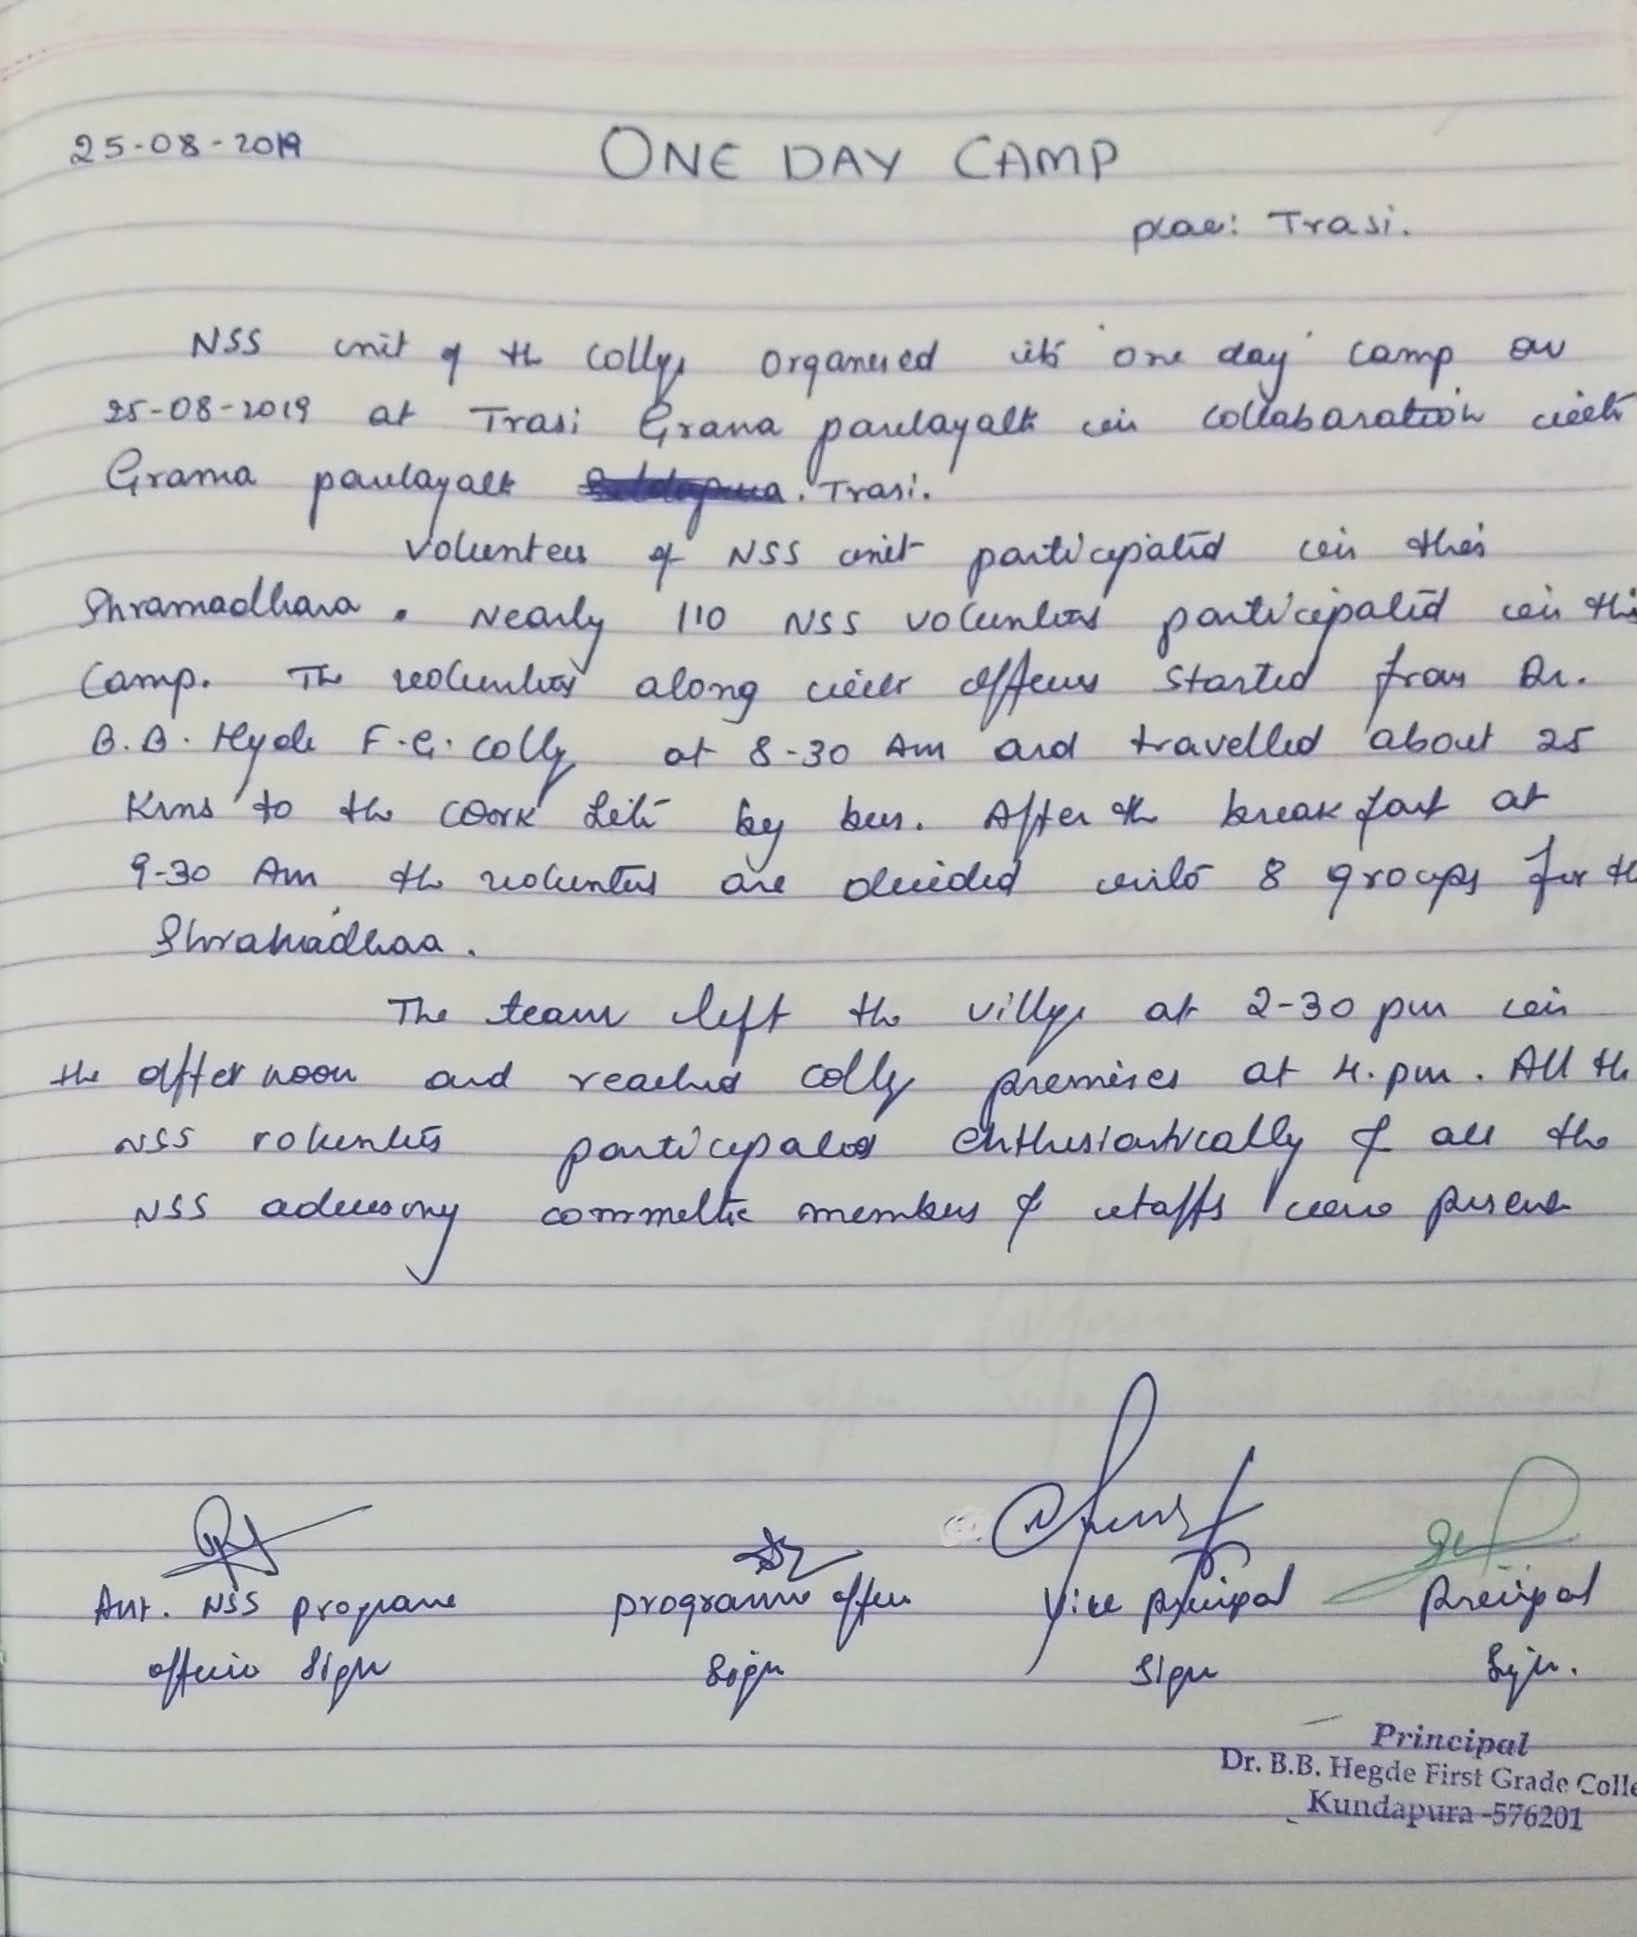 25-08-2019 ONE DAY CAMP
place: Trasi.
NSS unit of the College Organised its 'one day' camp on
25-08-2019 at Trasi Grama panchayath in collabaration with
Grama panchayath . Trasi.
Volunteers of NSS unit participated in this
Shramadhana. Nearly 110 NSS volunteers participated in this
Camp. The volunteers along with officers Started from Dr.
B.B. Hegde F.G. College at 8-30 Am and travelled about 25
Kms to the work site by bus. After the breakfast at
9-30 Am the volunteers are divided into 8 groups for the
Shramadhana.
The team left the village at 2-30 pm in
the after noon and reached college premises at 4.pm. All the
NSS volunteers participated enthusiastically & all the
NSS advisory committee members & staffs were present
Asst. NSS programe programme officer Vice principal principal
officer Sign Sign Sign Sign.
Principal
Dr. B.B. Hegde First Grade Colle
Kundapura -576201